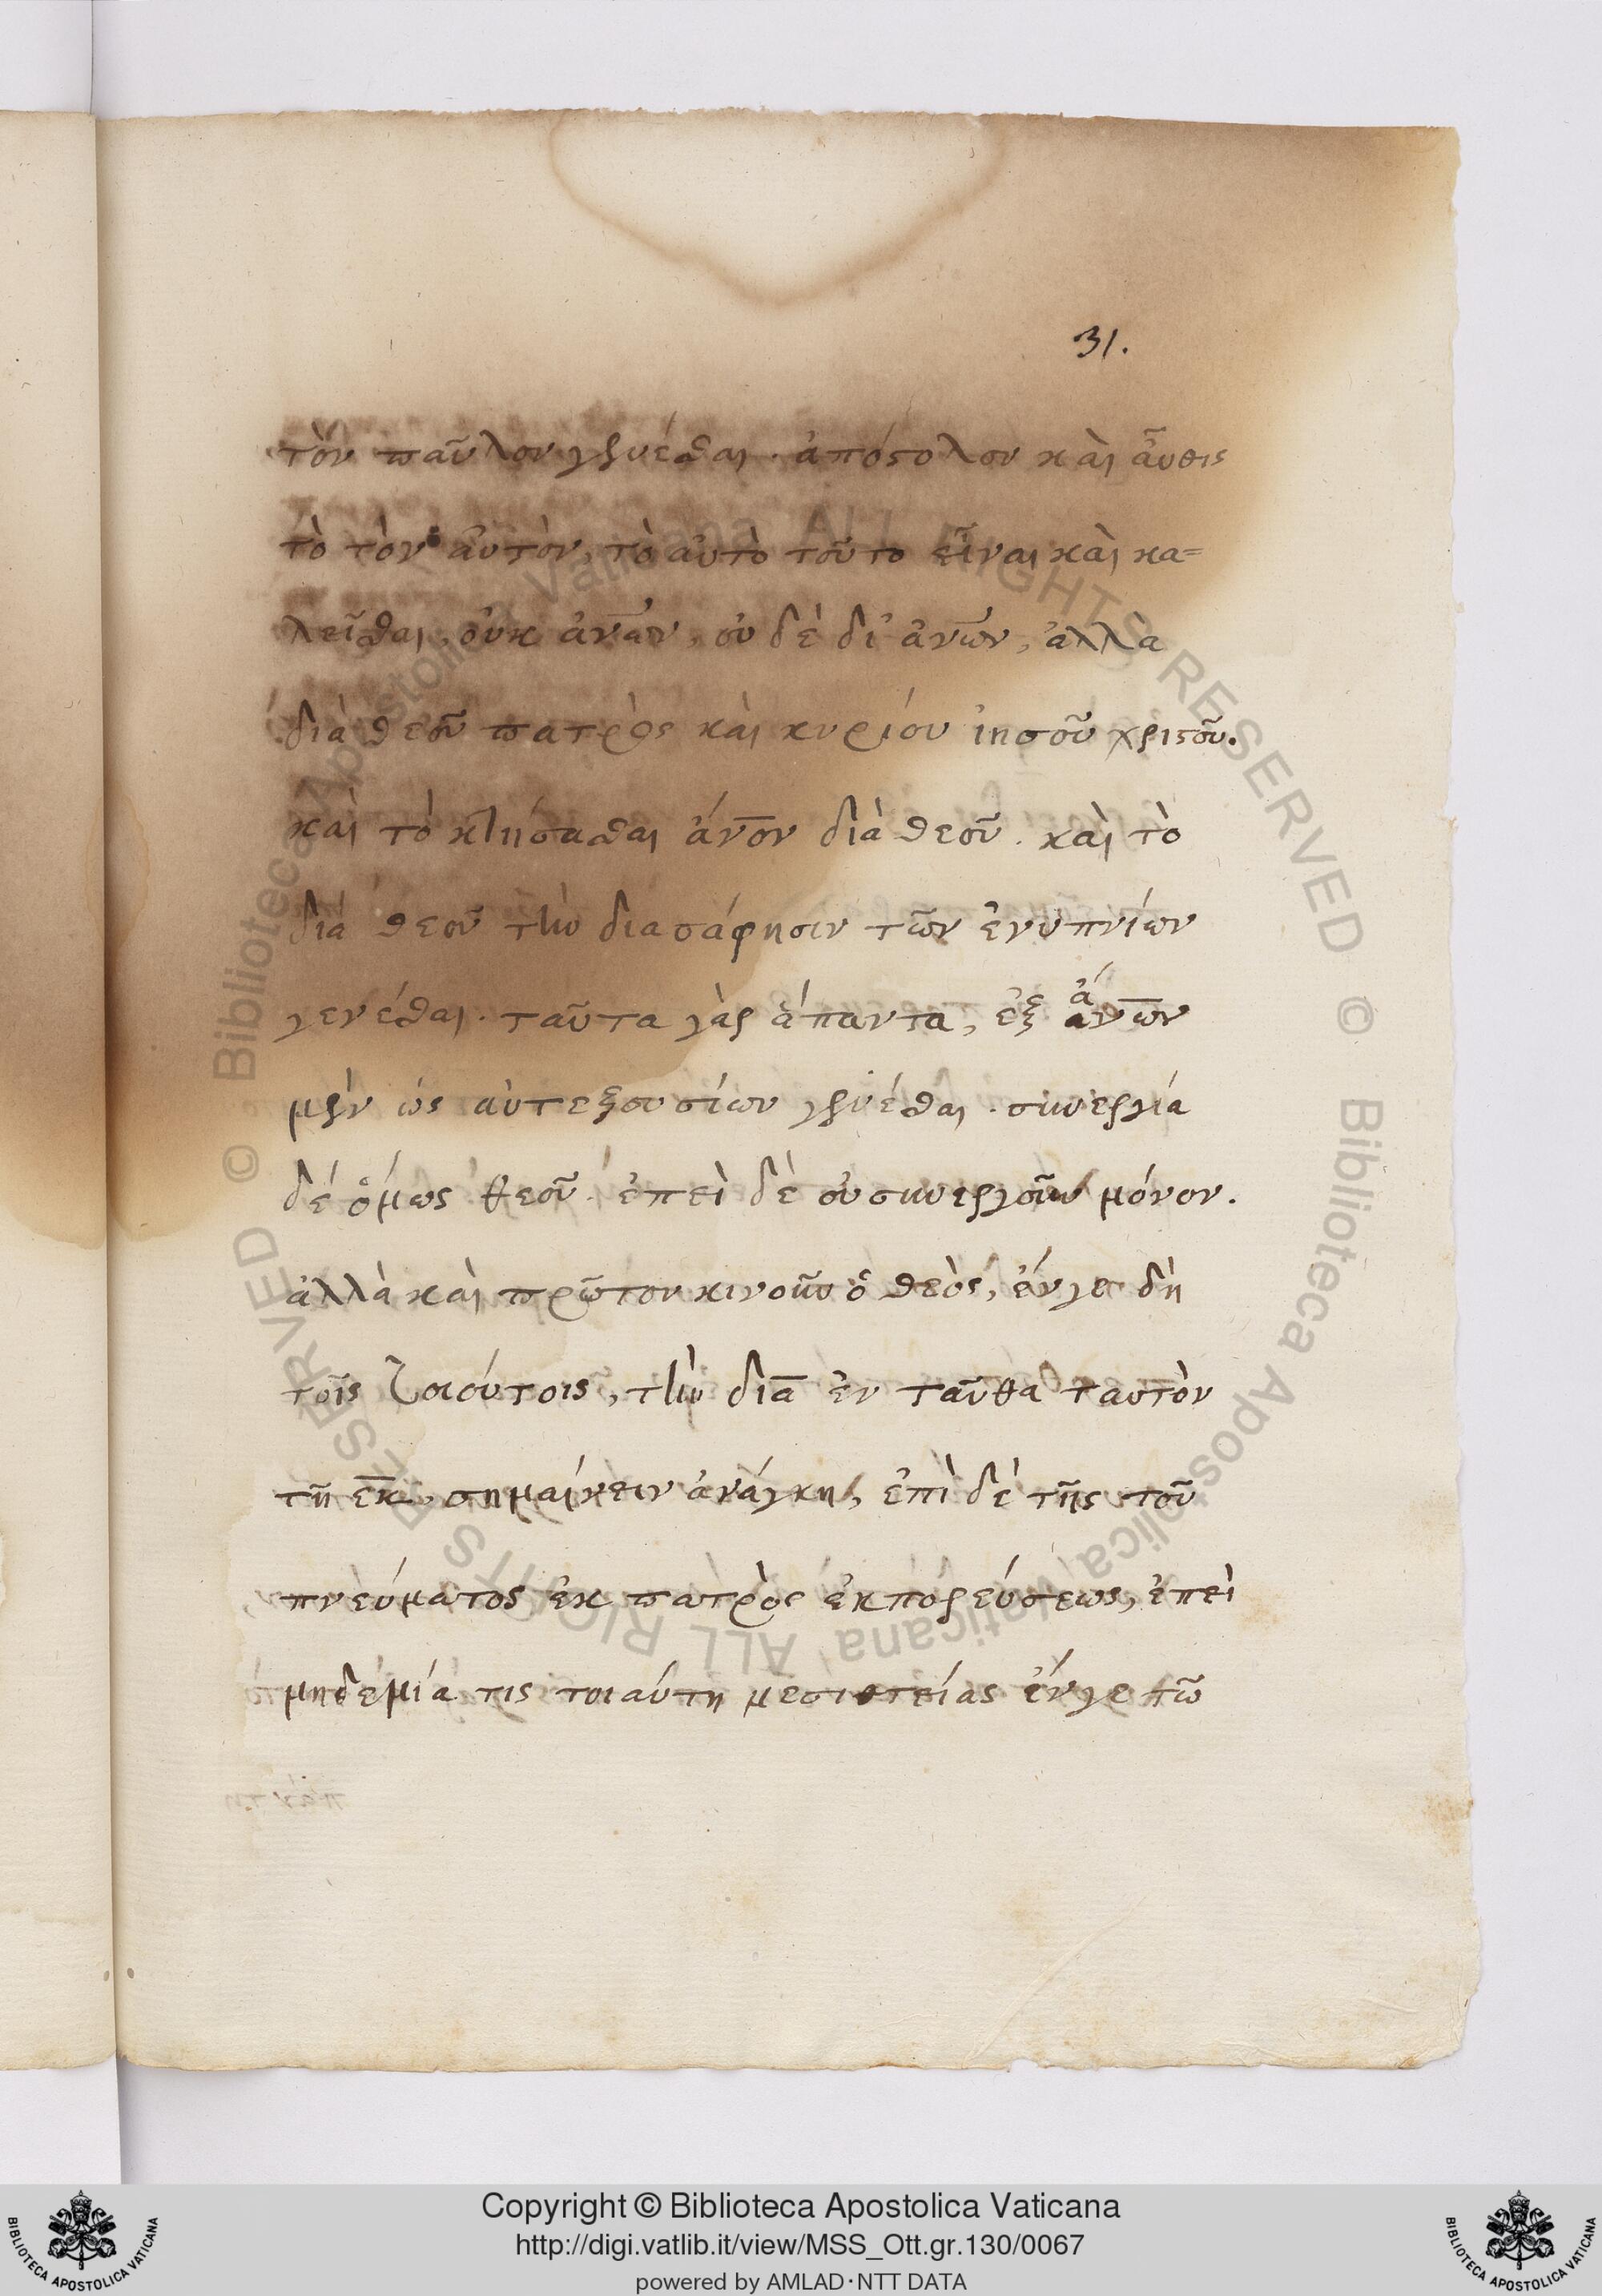 31.
τὸν παῦλον γενέσθαι. ἀπόστολον καὶ αὖθις
τὸ τὸν αὐτὸν, τὸ αὐτὸ τοῦτο εἶναι καὶ κα=
λεῖσθαι, οὐκ ἀνων, οὐδὲ δι' ἀνων, ἀλλὰ
διὰ θεοῦ πατρὸς καὶ κυρίου ἰησοῦ χριστοῦ.
καὶ τὸ κτήσασθαι ἄνον διὰ θεοῦ. καὶ τὸ
διὰ θεοῦ τὴν διασάφησιν τῶν ἐνυπνίων
γενέσθαι. ταῦτα γὰρ ἅπαντα, ἐξ ἀνων
μὲν ὡς αὐτεξουσίων γενέσθαι. συνεργία
δέ ὅμως θεοῦ. ἐπεὶ δὲ οὐ συνεργοῦν μόνον.
ἀλλὰ καὶ πρῶτον κινοῦν ὁ θεὸς, ἔνγε δὴ
τοῖς τοιούτοις, τὴν διὰ ἐν ταῦθα ταυτὸν
τῆ ἐκ, σημαίνειν ἀνάγκη, ἐπὶ δὲ τῆς τοῦ
πνεύματος ἐκ πατρὸς ἐκπορεύσεως, ἐπεὶ
μηδεμία τις τοιαύτη μεσιτείας ἔνγε τῶ
Copyright © Biblioteca Apostolica Vaticana
http://digi.vatlib.it/view/MSS_Ott.gr.130/0067
powered by AMLAD·NTT DATA
BIBLIOTECA APOSTOLICA VATICANA
BIBLIOTECA APOSTOLICA VATICANA
© Biblioteca Apostolica Vaticana ALL RIGHTS RESERVED
© Biblioteca Apostolica Vaticana ALL RIGHTS RESERVED